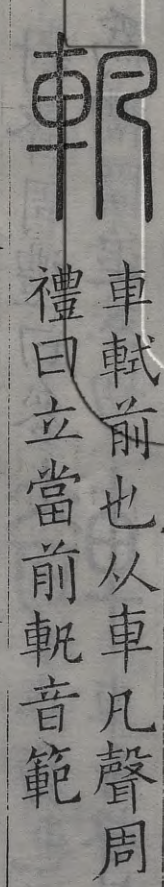 軓
車軾前也从車凡聲周
禮曰立當前軓音範